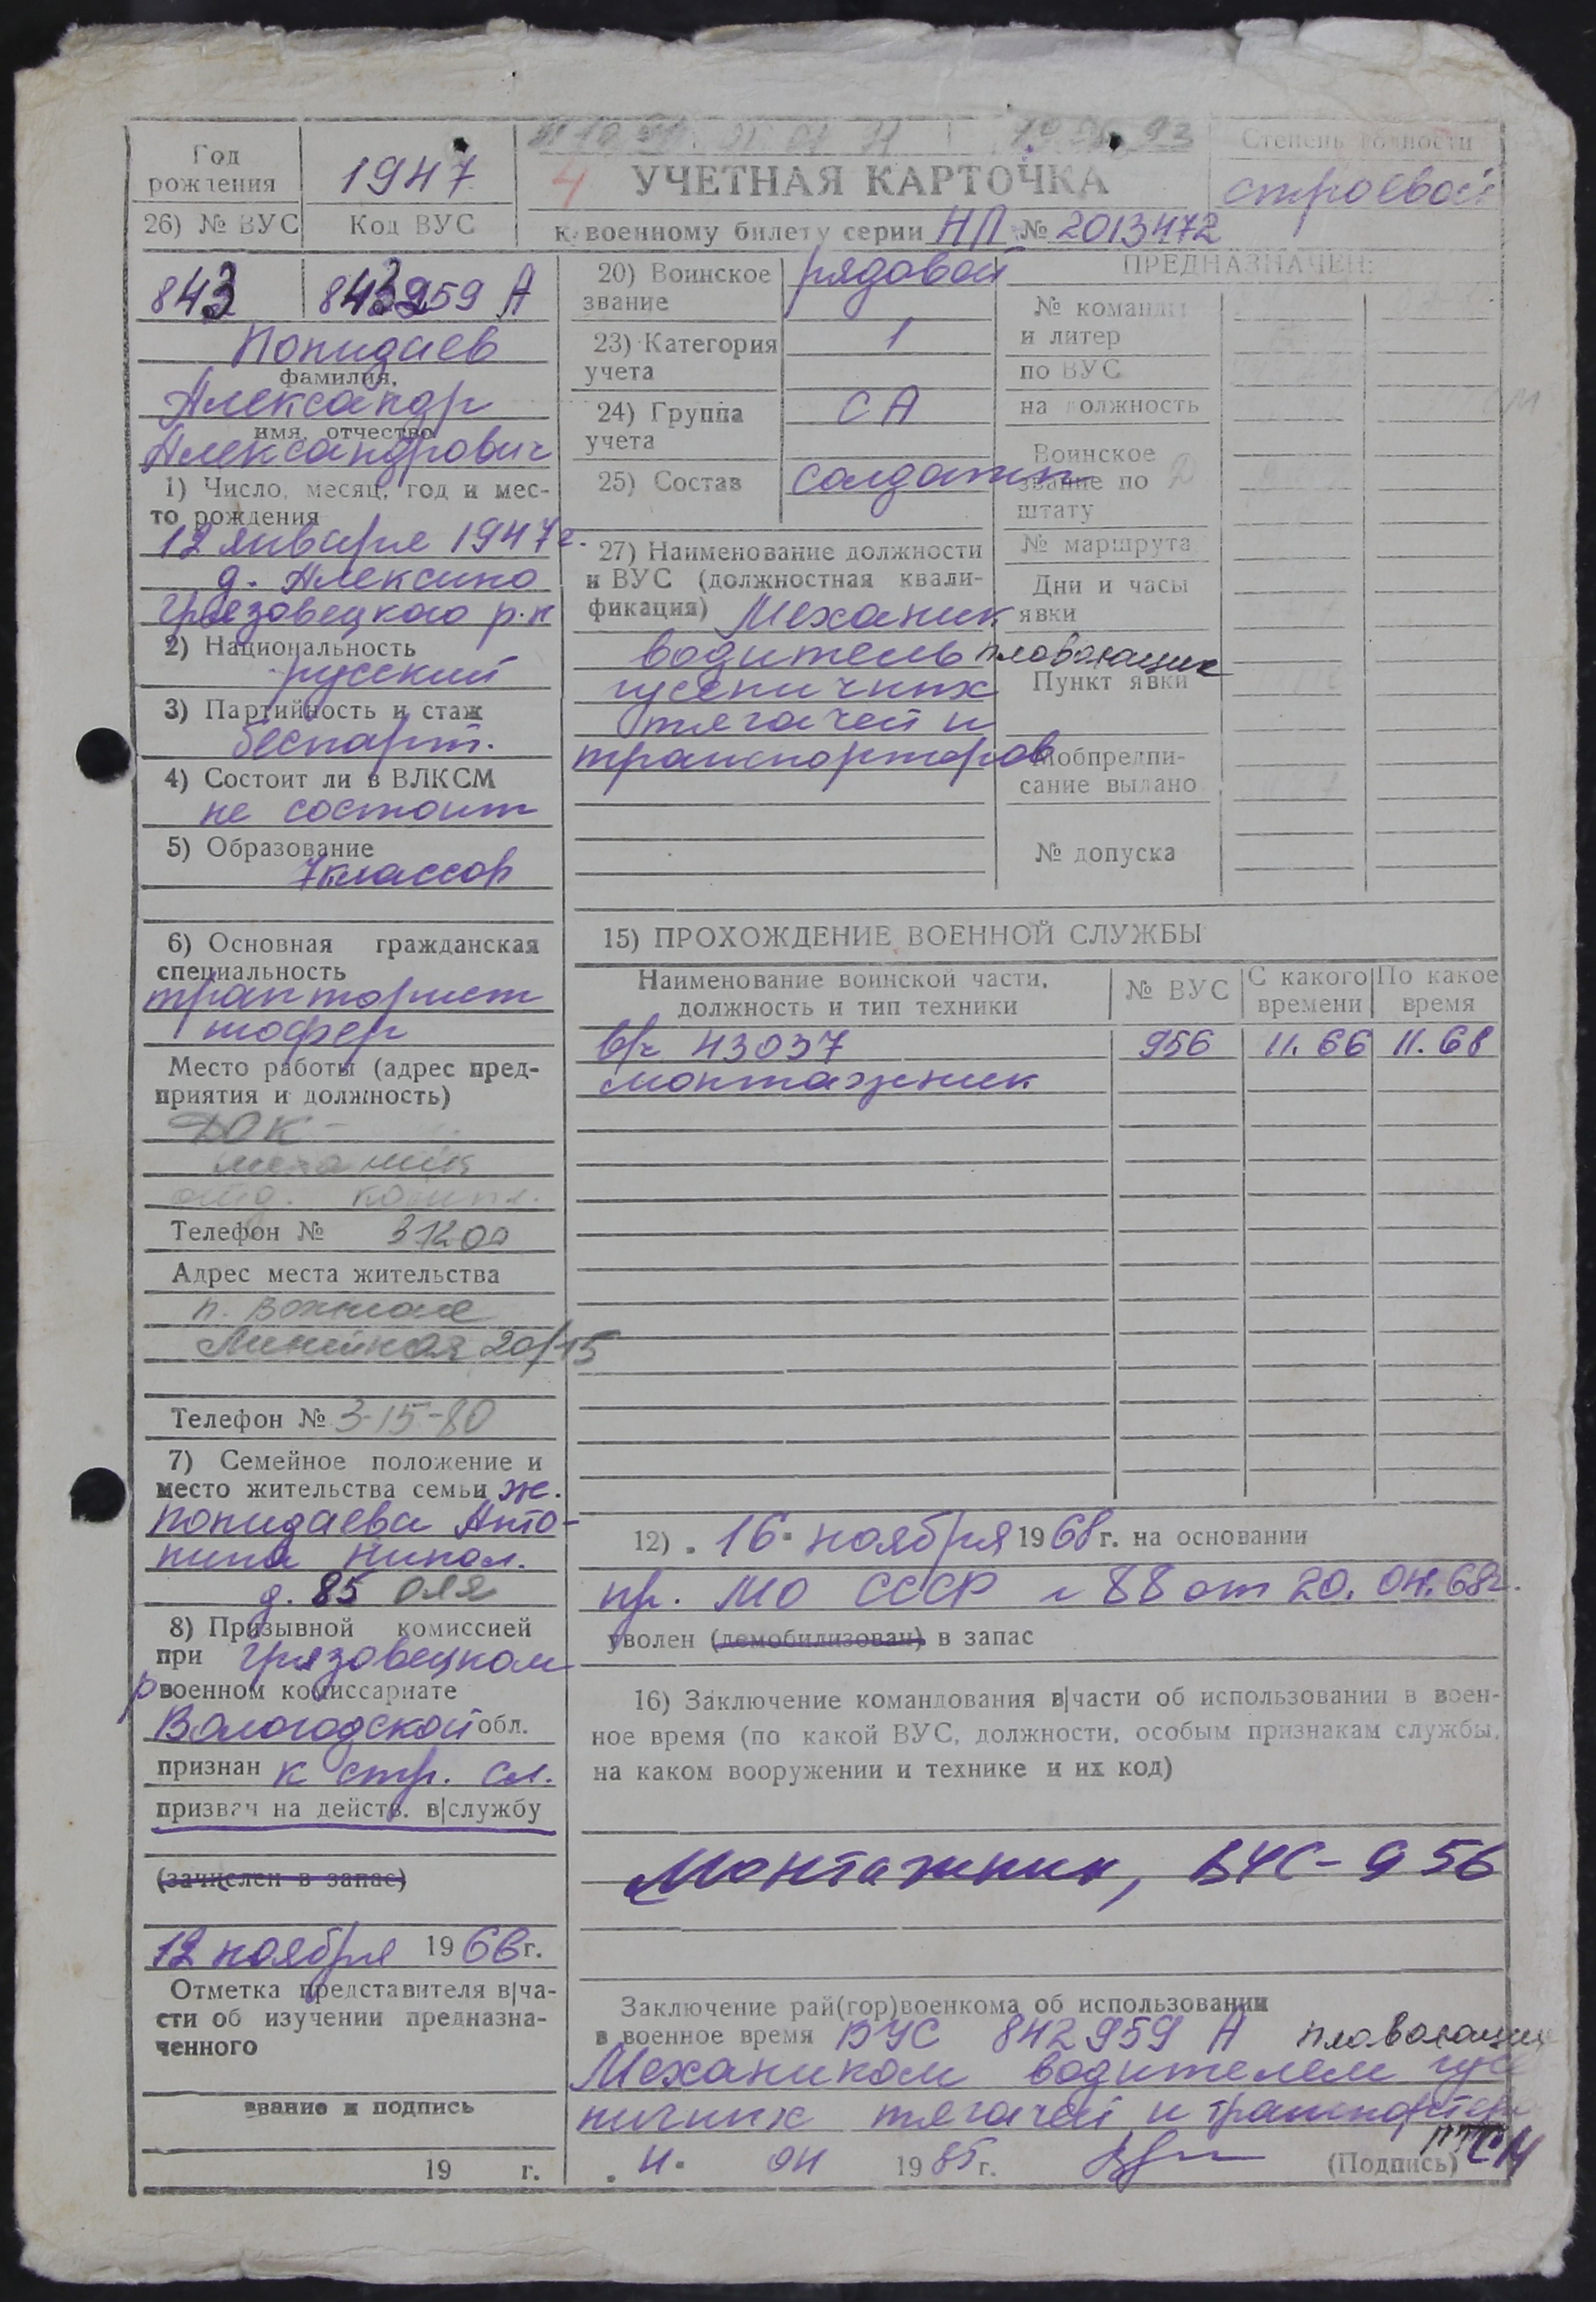 Год рождения
1947
26) № ВУС
Код ВУС
843
843959 А
4
УЧЕТНАЯ КАРТОЧКА
к военному билету серии НЛ № 2013472
Степень годности
строевой
Попидаев
фамилия,
Александр
имя, отчество
Александрович
1) Число, месяц, год и мес-
то рождения
12 января 1947 г.
д. Алексино
Грязовецкого р-н
2) Национальность
русский
3) Партийность и стаж
беспарт.
4) Состоит ли в ВЛКСМ
не состоит
5) Образование
7 классов
6) Основная гражданская
специальность
тракторист
шофер
Место работы (адрес пред-
приятия и должность)
ДОК -
механик
Телефон № 31200
Адрес места жительства
п. Вохтога
Линейная 20/15
Телефон № 3-15-80
7) Семейное положение и
место жительства семьи ж.
Попидаева Анто-
нина Никол.
д. 85 Оля
8) Призывной комиссией
при Грязовецком
р военном комиссариате
Вологодской обл.
признан к стр. сл.
призван на действ. в|службу
(зачислен в запас)
12 ноября 1966 г.
Отметка представителя в|ча-
сти об изучении предназна-
ченного
звание и подпись
19 г.
20) Воинское
звание
рядовой
23) Категория
учета
1
24) Группа
учета
СА
25) Состав
солдаты
27) Наименование должности
и ВУС (должностная квали-
фикация) Механик
водитель плавающих
гусеничных
тягачей и
транспортеров
ПРЕДНАЗНАЧЕН:
№ команды
и литер
по ВУС
на должность
Воинское
звание по
штату
№ маршрута
Дни и часы
явки
Пункт явки
Мобпредпи-
сание выдано
№ допуска
15) ПРОХОЖДЕНИЕ ВОЕННОЙ СЛУЖБЫ
Наименование воинской части,
должность и тип техники
№ ВУС
С какого
времени
По какое
время
в/ч 43037 956 11.66 11.68
монтажник
12) . 16 . ноября 1968 г. на основании
пр. МО СССР № 88 от 20.04.68г.
уволен (демобилизован) в запас
16) Заключение командования в|части об использовании в воен-
ное время (по какой ВУС, должности, особым признакам службы,
на каком вооружении и технике и их код)
Монтажник, ВУС-956
Заключение рай(гор)военкома об использовании
в военное время ВУС 842959 А плавающих
Механиком водителем гусе
ничных тягачей и транспортеров
. 4 . 04 1985 г.
(Подпись)